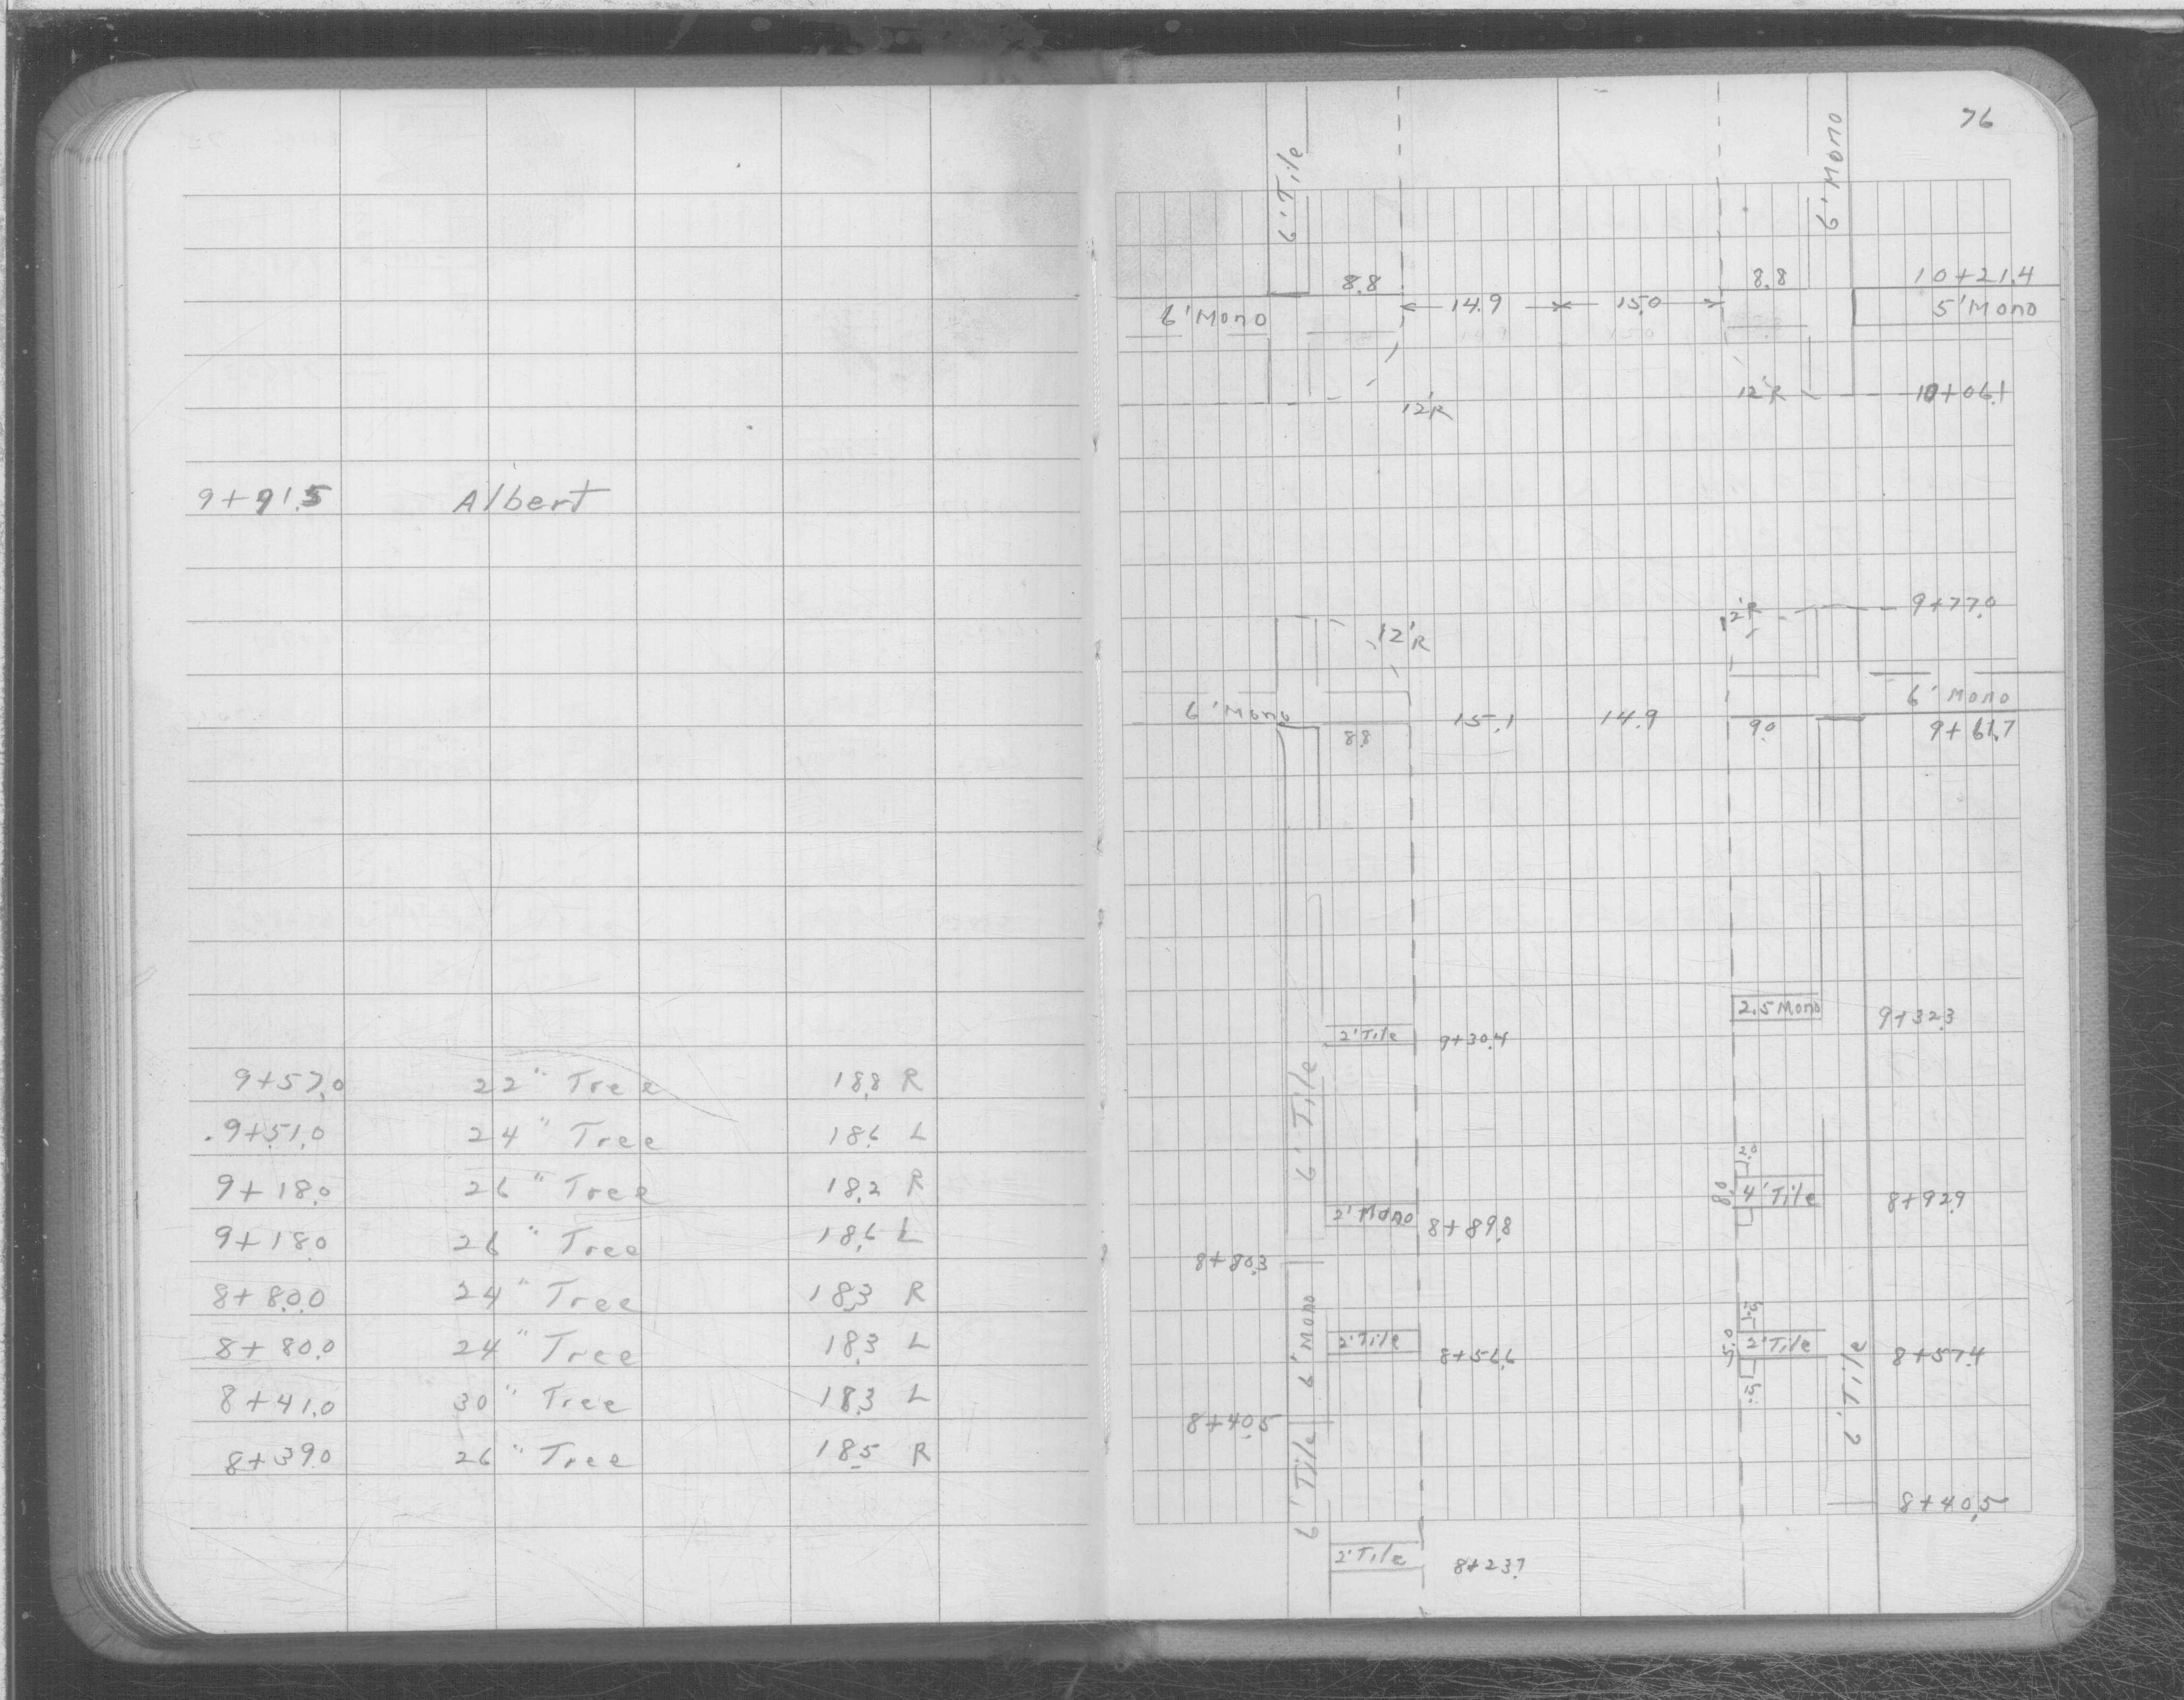 9+91.5 Albert
9+57.0 22" Tree 18.8 R
9+51.0 24" Tree 18.6 L
9+18.0 26" Tree 18.2 R
9+18.0 26" Tree 18.6 L
8+80.0 24" Tree 18.3 R
8+80.0 24" Tree 18.3 L
8+41.0 30" Tree 18.3 L
8+39.0 26" Tree 18.5 R
76
6' Tile
6' Mono
8.8
8.8
10+21.4
14.9
15.0
6' Mono
5' Mono
12'R
12'R
10+06.1
12'R
12'R
9+77.0
6' Mono
6' Mono
8.8
15.1
14.9
9.0
9+61.7
2.5 Mono
9+32.3
2' Tile
9+30.4
6' Tile
2.0
8.0
4' Tile
8+92.9
2' Mono
8+89.8
8+80.3
6' Mono
1.5
5.0
2' Tile
8+57.4
2' Tile
8+56.6
1.5
6' Tile
8+40.5
6' Tile
8+40.5
2' Tile
8+23.7